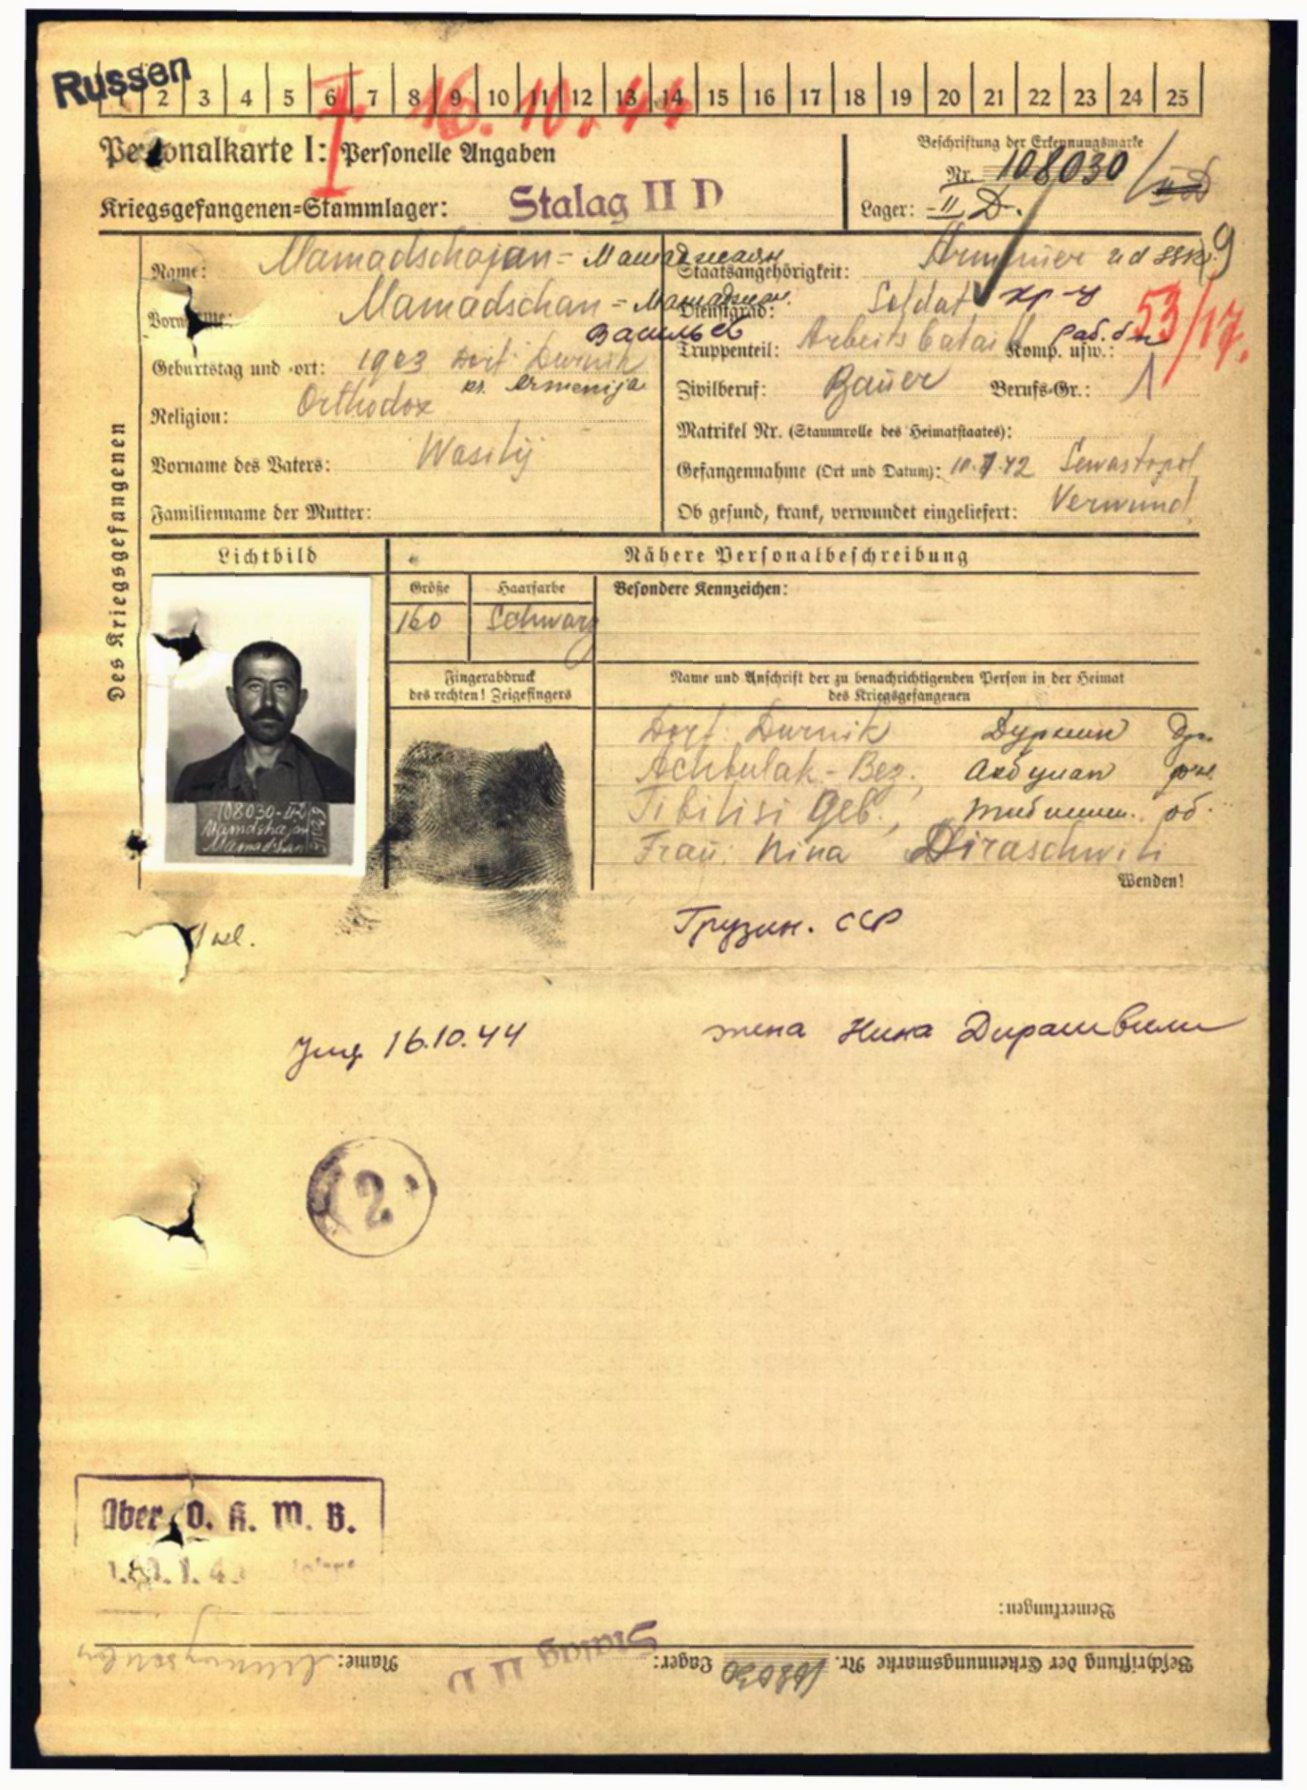 Russen
1 2 3 4 5 6 7 8 9 10 11 12 13 14 15 16 17 18 19 20 21 22 23 24 25
I. 16.10.44
Personalkarte I: Personelle Angaben
Beschriftung der Erkennungsmarke
Nr. 108030 / II D
Kriegsgefangenen=Stammlager: Stalag II D
Lager: II D.
Des Kriegsgefangenen
Name: Mamadschajan - Мамаджаян
Staatsangehörigkeit: Armenier
Vorname: Mamadschan - Мамаджан.
Васильев
Dienstgrad: Soldat кр-ц
53/17.
Truppenteil: Arbeits batail Komp. usw.: раб. б-н
Geburtstag und -ort: 1903 Dorf. Durnik
Armenija
Zivilberuf: Bauer Berufs-Gr.: 1
Religion: Orthodox
Matrikel Nr. (Stammrolle des Heimatstaates):
Vorname des Vaters: Wasilij
Gefangennahme (Ort und Datum): 10.7.42 Sewastopol
Familienname der Mutter:
Ob gesund, krank, verwundet eingeliefert: Verwund.
Lichtbild
Nähere Personalbeschreibung
Größe
Haarfarbe
Besondere Kennzeichen:
160
Schwarz
Fingerabdruck
des rechten! Zeigefingers
Name und Anschrift der zu benachrichtigenden Person in der Heimat
des Kriegsgefangenen
Dorf: Durnik
Achbulak - Bez.,
Tibilisi Geb.,
Frau: Nina Diraschwili
Wenden!
108030-II D
Mamdshajan
Mamadshan
Грузин. ССР
16.10.44
жена Нина Дирашвили
2
Über O. K. W. B.
Bemerkungen:
Beschriftung der Erkennungsmarke Nr. 108030 Lager: Stalag II D Name: